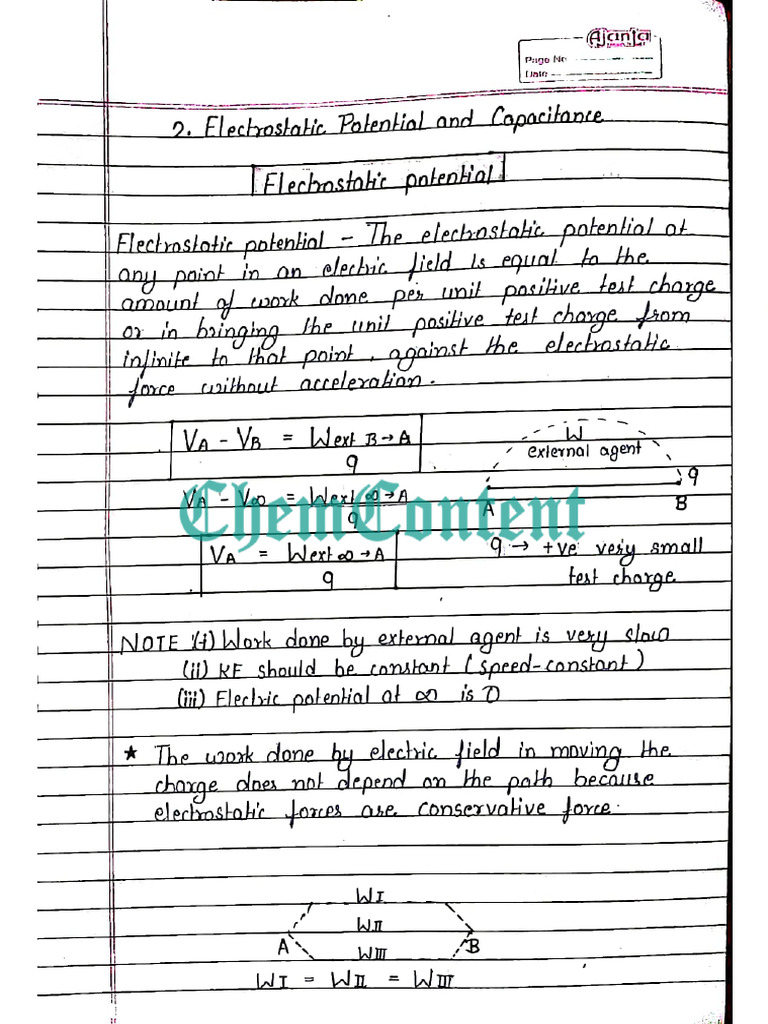 Ajanta
Page No
Date
2. Electrostatic Potential and Capacitance
Electrostatic potential
Electrostatic potential – The electrostatic potential at
any point in an electric field is equal to the
amount of work done per unit positive test charge
or in bringing the unit positive test charge from
infinite to that point, against the electrostatic
force without acceleration.
VA – VB = Wext B→A
q
W
external agent
q
A B
VA – V∞ = Wext ∞→A
q
ChemContent
VA = Wext ∞→A
q
q → +ve very small
test charge
NOTE :(i) Work done by external agent is very slow
(ii) KE should be constant (speed-constant)
(iii) Electric potential at ∞ is 0
★ The work done by electric field in moving the
charge does not depend on the path because
electrostatic forces are conservative force.
WI
WII
A B
WIII
WI = WII = WIII